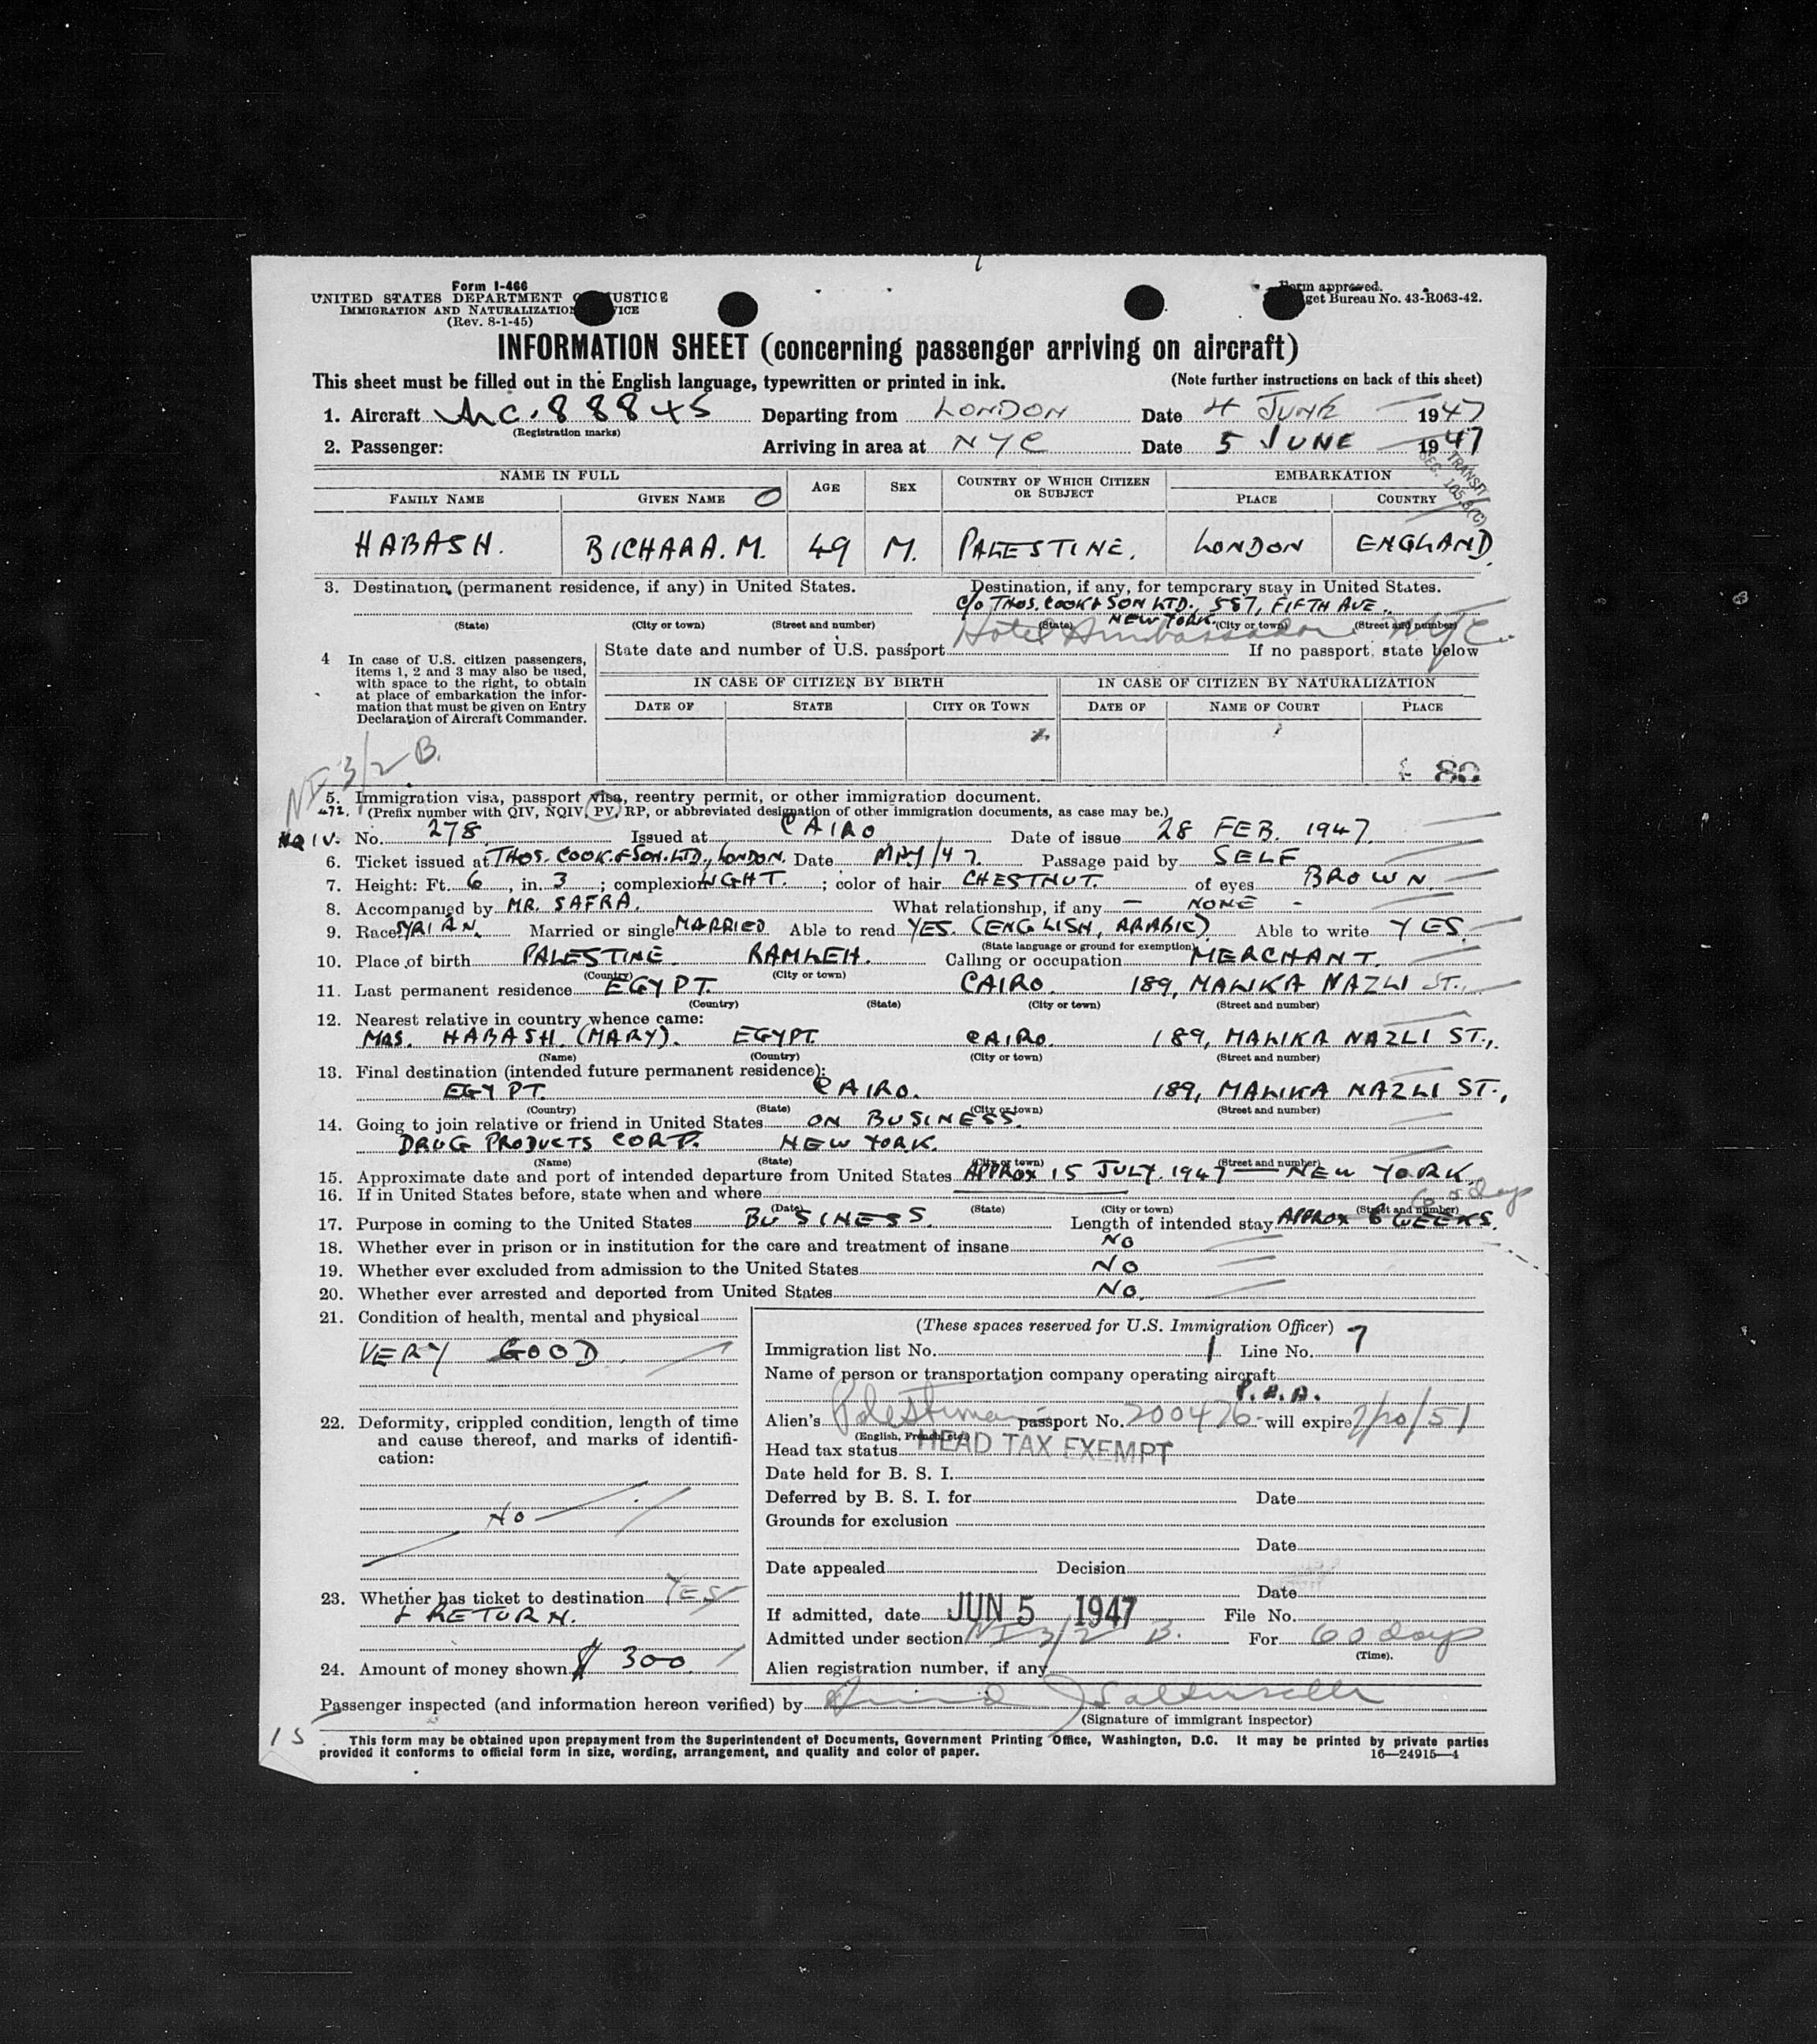 Form I-466
UNITED STATES DEPARTMENT OF JUSTICE
IMMIGRATION AND NATURALIZATION SERVICE
(Rev. 8-1-45)
Form approved.
Budget Bureau No. 43-R063-42.
INFORMATION SHEET (concerning passenger arriving on aircraft)
This sheet must be filled out in the English language, typewritten or printed in ink. (Note further instructions on back of this sheet)
1. Aircraft N.C. 88845 Departing from LONDON Date 4 JUNE 1947
(Registration marks)
2. Passenger: Arriving in area at NYC Date 5 JUNE 1947
TRANSIT
SEC. 105.3(C)
NAME IN FULL AGE SEX COUNTRY OF WHICH CITIZEN OR SUBJECT EMBARKATION
FAMILY NAME GIVEN NAME PLACE COUNTRY
HABASH. BICHARA. M. 49 M. PALESTINE. LONDON ENGLAND.
3. Destination, (permanent residence, if any) in United States. Destination, if any, for temporary stay in United States.
C/o THOS. COOK & SON LTD., 587, FIFTH AVE.
NEW YORK.
(State) (City or town) (Street and number) (State) (City or town) (Street and number)
Hotel Ambassador NYC.
4 In case of U.S. citizen passengers,
items 1, 2 and 3 may also be used,
with space to the right, to obtain
at place of embarkation the infor-
mation that must be given on Entry
Declaration of Aircraft Commander.
State date and number of U.S. passport If no passport, state below
IN CASE OF CITIZEN BY BIRTH IN CASE OF CITIZEN BY NATURALIZATION
DATE OF STATE CITY OR TOWN DATE OF NAME OF COURT PLACE
80
NI 3/2 B.
5. Immigration visa, passport visa, reentry permit, or other immigration document.
(Prefix number with QIV, NQIV, PV, RP, or abbreviated designation of other immigration documents, as case may be.)
NQIV. No. 278 Issued at CAIRO Date of issue 28 FEB. 1947.
6. Ticket issued at THOS. COOK & SON. LTD., LONDON. Date MAY/47. Passage paid by SELF
7. Height: Ft. 6, in. 3; complexion LIGHT.; color of hair CHESTNUT. of eyes BROWN.
8. Accompanied by MR. SAFRA. What relationship, if any - NONE -
9. Race SYRIAN. Married or single MARRIED Able to read YES. (ENGLISH, ARABIC). Able to write YES.
(State language or ground for exemption)
10. Place of birth PALESTINE RAMLEH. Calling or occupation MERCHANT.
(Country) (City or town)
11. Last permanent residence EGYPT. CAIRO. 189, MALIKA NAZLI ST.,
(Country) (State) (City or town) (Street and number)
12. Nearest relative in country whence came:
MRS. HABASH. (MARY). EGYPT. CAIRO. 189, MALIKA NAZLI ST.,
(Name) (Country) (City or town) (Street and number)
13. Final destination (intended future permanent residence):
EGYPT. CAIRO. 189, MALIKA NAZLI ST.,
(Country) (State) (City or town) (Street and number)
14. Going to join relative or friend in United States ON BUSINESS.
DRUG PRODUCTS CORP. NEW YORK.
(Name) (State) (City or town) (Street and number)
15. Approximate date and port of intended departure from United States APPROX 15 JULY. 1947 — NEW YORK.
16. If in United States before, state when and where
(Date) (State) (City or town) (Street and number)
60 days
17. Purpose in coming to the United States BUSINESS. Length of intended stay APPROX 6 WEEKS.
18. Whether ever in prison or in institution for the care and treatment of insane NO
19. Whether ever excluded from admission to the United States NO
20. Whether ever arrested and deported from United States NO.
21. Condition of health, mental and physical
VERY GOOD.
22. Deformity, crippled condition, length of time
and cause thereof, and marks of identifi-
cation:
NO
23. Whether has ticket to destination YES
& RETURN.
24. Amount of money shown $ 300
(These spaces reserved for U.S. Immigration Officer)
Immigration list No. 1 Line No. 7
Name of person or transportation company operating aircraft
P.A.A.
Alien's Palestinian passport No. 200476 will expire 2/20/51
(English, French, etc.)
Head tax status HEAD TAX EXEMPT
Date held for B. S. I.
Deferred by B. S. I. for Date
Grounds for exclusion
Date
Date appealed Decision
Date
If admitted, date JUN 5 1947 File No.
Admitted under section NI 3/2 B. For 60 days
(Time).
Alien registration number, if any
Passenger inspected (and information hereon verified) by
(Signature of immigrant inspector)
15
This form may be obtained upon prepayment from the Superintendent of Documents, Government Printing Office, Washington, D.C. It may be printed by private parties
provided it conforms to official form in size, wording, arrangement, and quality and color of paper. 16—24915—4